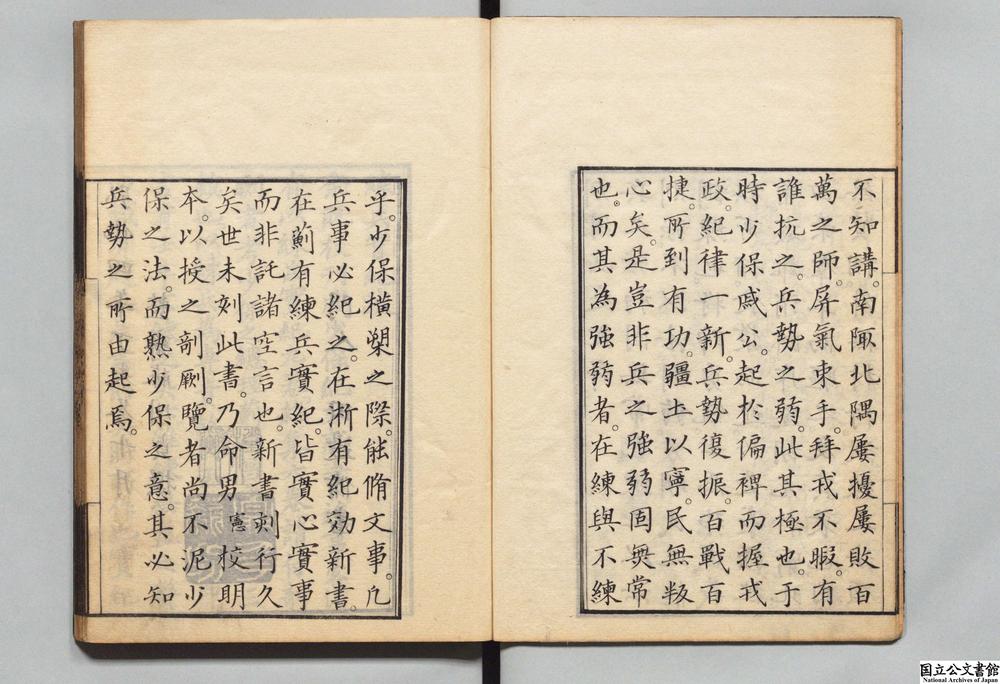 不知講。南陬北隅屢擾屢敗百
萬之師。屏氣束手。拜戎不暇。有
誰抗之。兵勢之弱。此其極也。于
時少保戚公。起於偏裨而握戎
政。紀律一新。兵勢復振。百戰百
捷。所到有功。疆土以寧。民無叛
心矣。是豈非兵之強弱固無常
也。而其為強弱者。在練與不練
乎。少保橫槊之際。能脩文事。凡
兵事必紀之。在淅有紀効新書。
在薊有練兵實紀。皆實心實事
而非託諸空言也。新書刻行久
矣世未刻此書。乃命男憲校明
本。以授之剞劂。覽者尚不泥少
保之法。而熟少保之意。其必知
兵勢之所由起焉。
国立公文書館
National Archives of Japan